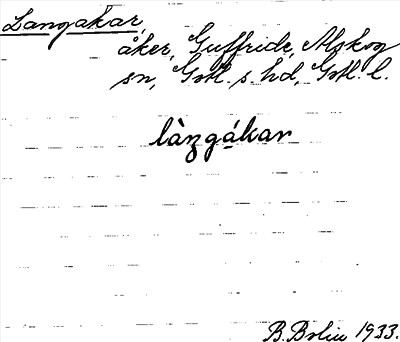 Langakar,
åker, Guffride, Alskog
sn, Gotl. s. hd, Gotl. l.
làngákar
B. Bolin 1933.